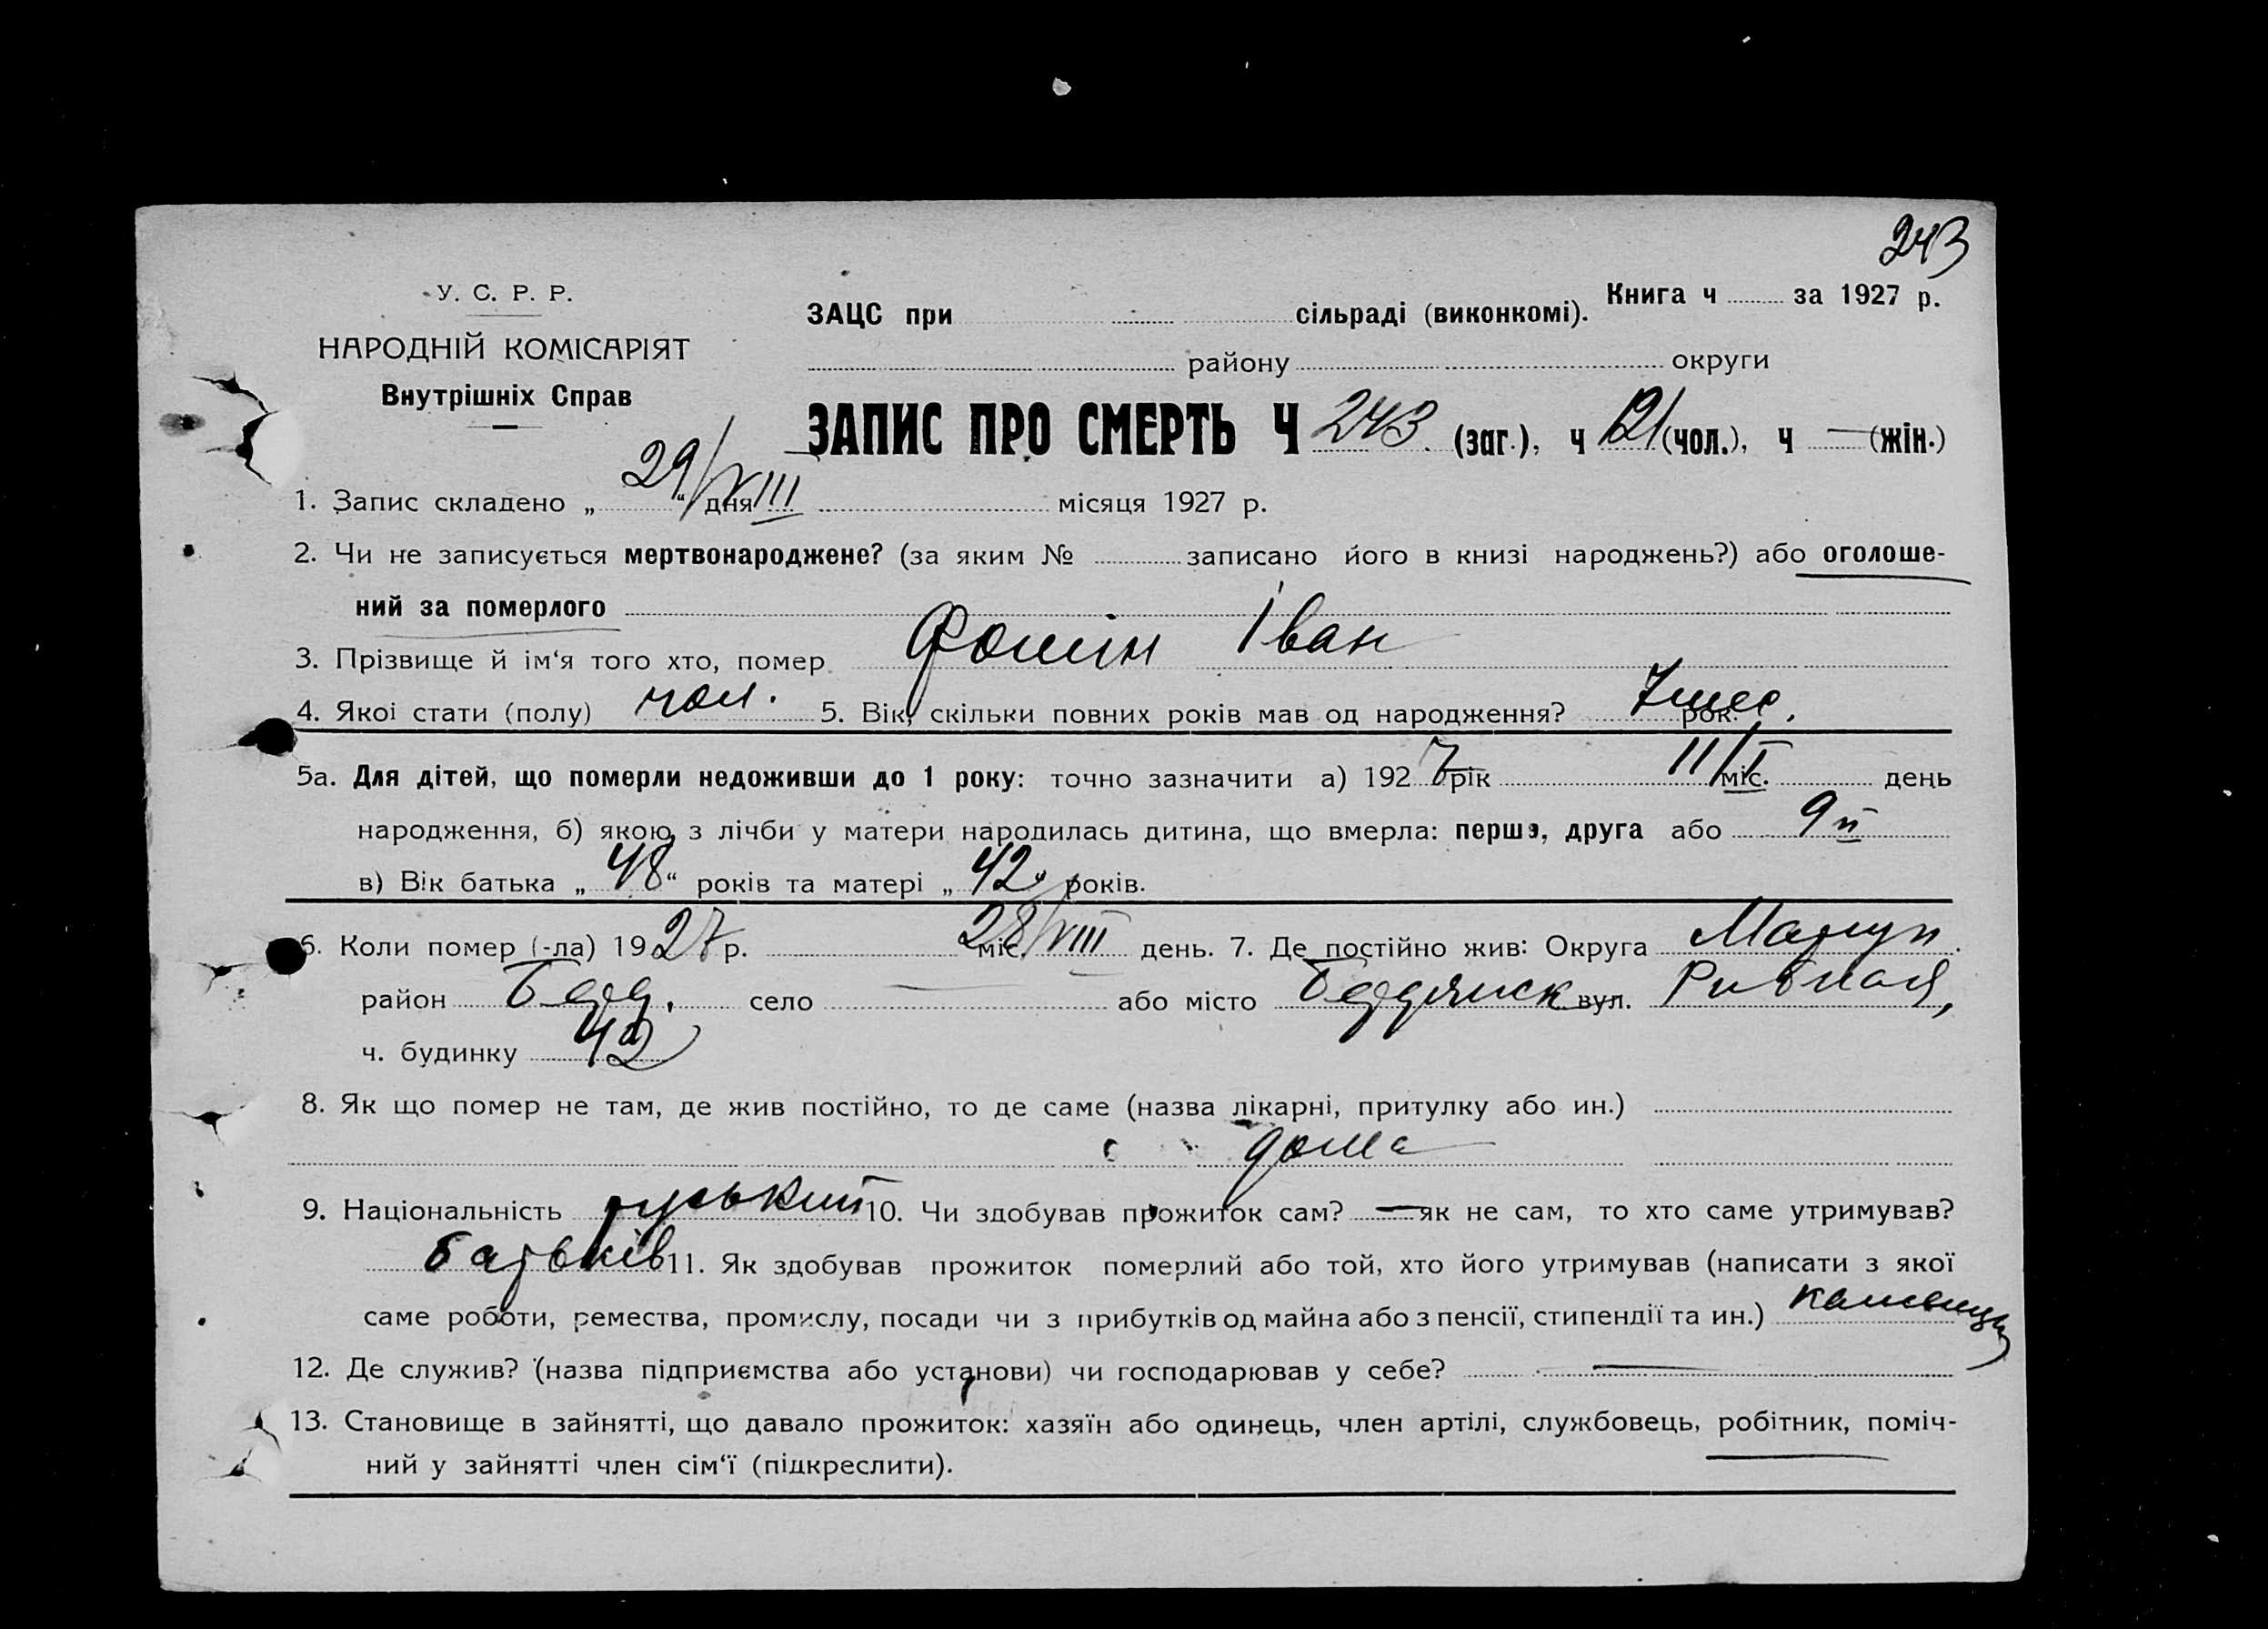 243
У. С. Р. Р.
НАРОДНІЙ КОМІСАРІЯТ
Внутрішніх Справ
Книга ч за 1927 р.
ЗАЦС при сільраді (виконкомі).
району округи
ЗАПИС ПРО СМЕРТЬ Ч 243 (заг.), ч 121 (чол.), ч — (жін.)
1. Запис складено „29/VIII“ дня місяця 1927 р.
2. Чи не записується мертвонароджене? (за яким № записано його в книзі народжень?) або оголоше-
ний за померлого
3. Прізвище й ім‘я того хто, помер Фомін Іван
4. Якої стати (полу) чол. 5. Вік, скільки повних років мав од народження? 7 мес. рок.
5а. Для дітей, що померли недоживши до 1 року: точно зазначити а) 1927 рік 11/I міс. день
народження, б) якою з лічби у матери народилась дитина, що вмерла: перша, друга або 9й
в) Вік батька „48“ років та матері „42“ років.
6. Коли помер (-ла) 1927 р. 28/VIII міс. день. 7. Де постійно жив: Округа Мариуп.
район Берд. село — або місто Бердянск вул. Ривная,
ч. будинку 42
8. Як що помер не там, де жив постійно, то де саме (назва лікарні, притулку або ин.)
дома
9. Національність руський 10. Чи здобував прожиток сам? — як не сам, то хто саме утримував?
батьків 11. Як здобував прожиток померлий або той, хто його утримував (написати з якої
саме роботи, ремества, промислу, посади чи з прибутків од майна або з пенсії, стипендії та ин.)
12. Де служив? (назва підприємства або установи) чи господарював у себе? —
13. Становище в зайнятті, що давало прожиток: хазяїн або одинець, член артілі, службовець, робітник, поміч-
ний у зайнятті член сім‘ї (підкреслити).